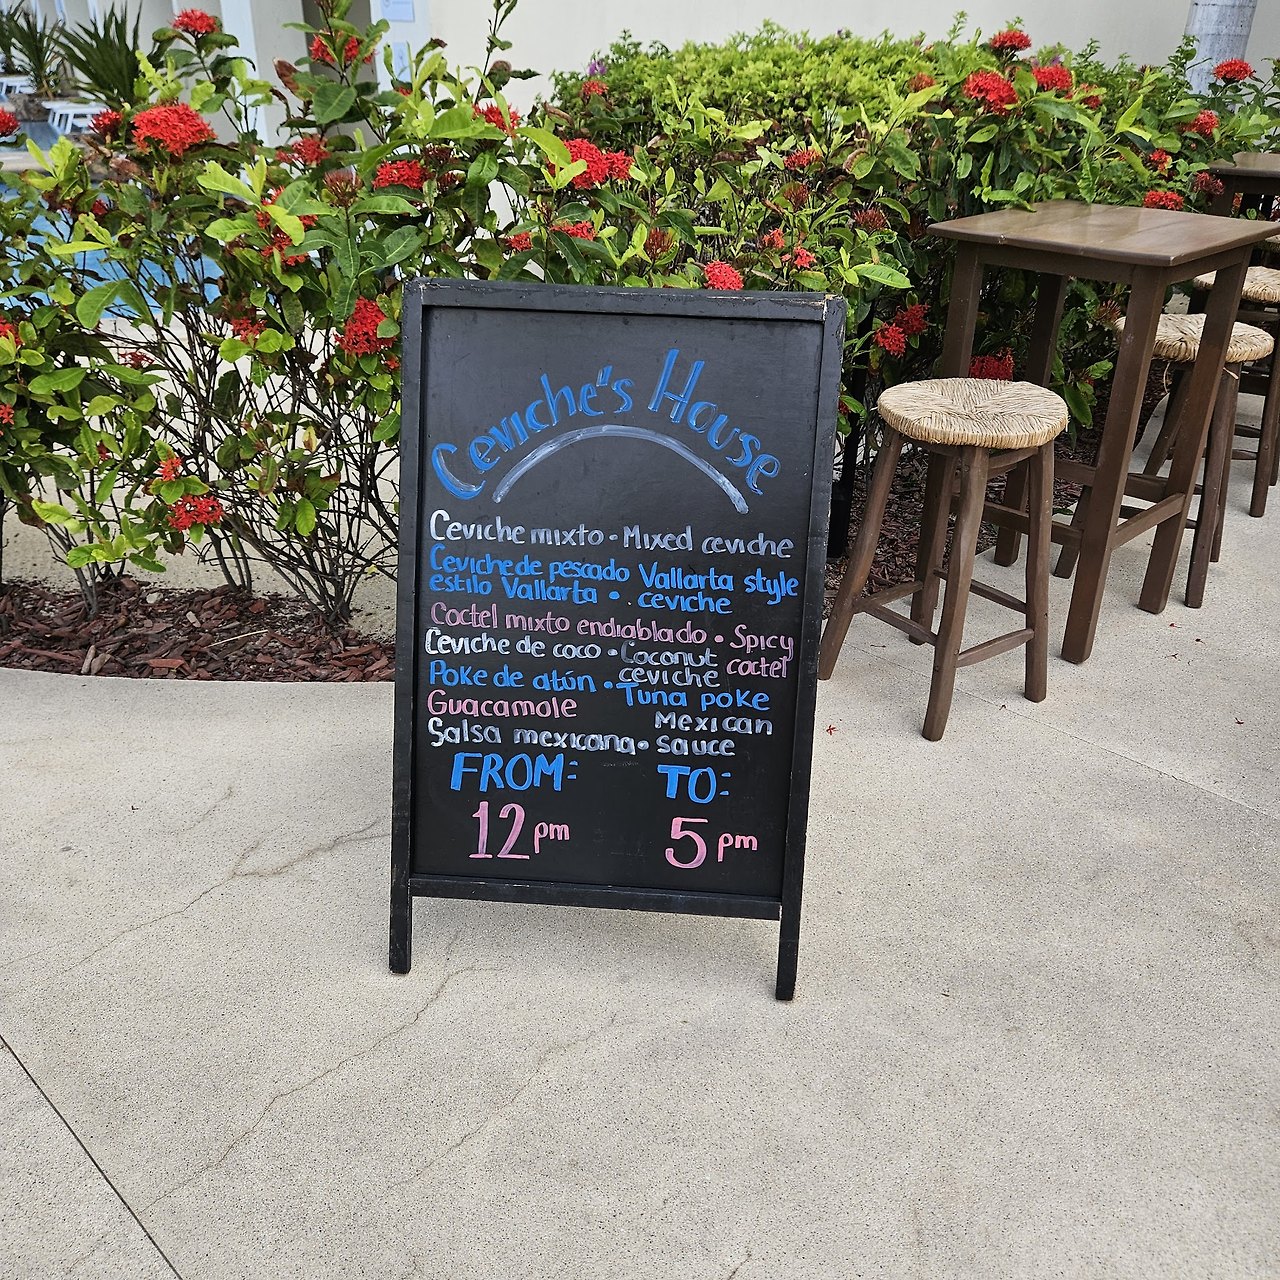 Ceviche's House
Ceviche mixto • Mixed ceviche
Ceviche de pescado Vallarta style
estilo Vallarta • ceviche
Coctel mixto endiablado • Spicy
coctel
Ceviche de coco • Coconut
ceviche
Poke de atún • Tuna poke
Guacamole
Mexican
Salsa mexicana • sauce
FROM: TO:
12 pm 5 pm